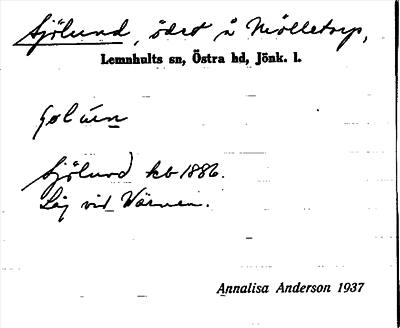 Sjölund, ödet å Mölletorp,
Lemnhults sn, Östra hd, Jönk. l.
Sjölund kb 1886.
Låg vid Värnen.
Annalisa Anderson 1937